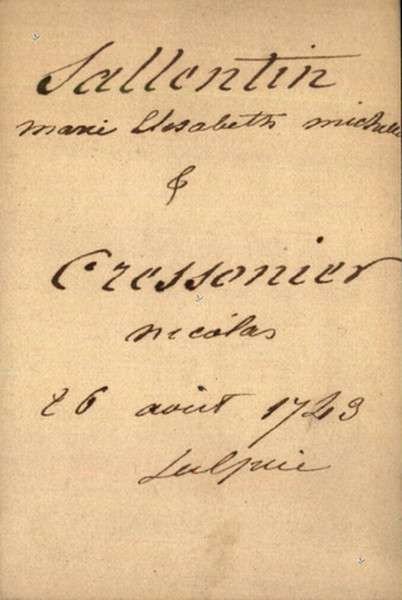 Sallentin
marie Elisabeth michelle
&
Cressonier
nicolas
26 août 1743
Sulpice